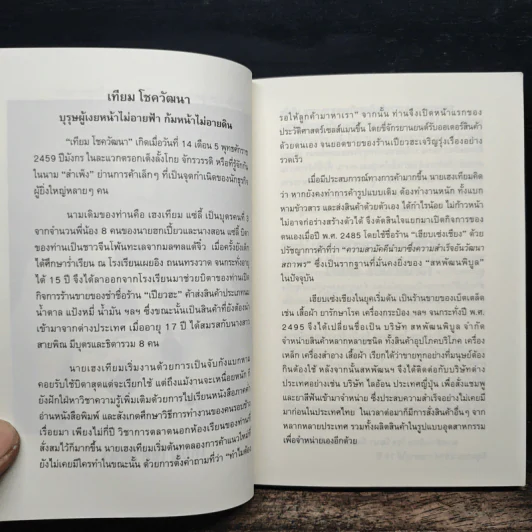 เทียม โชควัฒนา
บุรุษผู้เงยหน้าไม่อายฟ้า ก้มหน้าไม่อายดิน
"เทียม โชควัฒนา" เกิดเมื่อวันที่ 14 เดือน 5 พุทธศักราช
2459 ปีมังกร ในละแวกตรอกเต๊งตั้งไทย จักรวรรดิ หรือที่รู้จักกัน
ในนาม "สำเพ็ง" ย่านการค้าเล็กๆ ที่เป็นจุดกำเนิดของนักธุรกิจ
ผู้ยิ่งใหญ่หลายๆ คน
นามเดิมของท่านคือ เฮงเทียม แซ่ลี้ เป็นบุตรคนที่
จากจำนวนพี่น้อง 8 คนของนายฮกเปี้ยวและนางสอน แซ่ลี้ บิดา
ของท่านเป็นชาวจีนโพ้นทะเลจากมณฑลแต้จิ๋ว เมื่อครั้งยังเล็ก
ได้ศึกษาร่ำเรียน ณ โรงเรียนเผยอิง ถนนทรงวาด จนกระทั่งอายุ
ได้ 15 ปี จึงได้ลาออกจากโรงเรียนมาช่วยบิดาของท่านเปิด
กิจการร้านขายของชำชื่อร้าน "เปียวฮะ" ค้าส่งสินค้าประเภทนม
น้ำตาล แป้งหมี่ น้ำมัน ฯลฯ ซึ่งขณะนั้นเป็นสินค้าที่ยังต้องนำ
เข้ามาจากต่างประเทศ เมื่ออายุ 17 ปี ได้สมรสกับนางสาว
สายพิณ มีบุตรและธิดารวม 8 คน
นายเฮงเทียมเริ่มงานด้วยการเป็นจับกังแบกหาม
คอยรับใช้บิดาสุดแต่จะเรียกใช้ แต่ถึงแม้งานจะเหนื่อยหนัก ก็
ยังฝักใฝ่หาวิชาความรู้เพิ่มเติมด้วยการไปเรียนหนังสือภาคค่ำ
อ่านหนังสือพิมพ์ และสังเกตศึกษาวิธีการทำงานของคนรอบข้าง
เรื่อยมา เพียงไม่กี่ปี วิชาการตลาดนอกห้องเรียนของท่านก็
สั่งสมไว้ก็มากขึ้น นายเฮงเทียมเริ่มต้นทดลองการค้าแนวใหม่ที่
ยังไม่เคยมีใครทำในขณะนั้น ด้วยการตั้งคำถามที่ว่า "ทำไมต้อง
รอให้ลูกค้ามาหาเรา" จากนั้น ท่านจึงเปิดหน้าแรกของ
ประวัติศาสตร์เซลส์แมนขึ้น โดยขี่จักรยานยนต์รับออเดอร์สินค้า
ด้วยตนเอง จนยอดขายของร้านเปียวฮะเจริญรุ่งเรืองอย่าง
รวดเร็ว
เมื่อมีประสบการณ์ทางการค้ามากขึ้น นายเฮงเทียมคิด
ว่า หากยังคงทำการค้ารูปแบบเดิม ต้องทำงานหนัก ทั้งแบก
หามข้าวสาร และส่งสินค้าด้วยตัวเอง ได้กำไรน้อย ไม่ก้าวหน้า
ไม่อาจก่อร่างสร้างตัวได้ จึงตัดสินใจแยกมาเปิดกิจการของ
ตนเองเมื่อปี พ.ศ. 2485 โดยใช้ชื่อร้าน "เฮียบเซ่งเชียง" ด้วย
ปรัชญาการค้าที่ว่า "ความสามัคคีนำมาซึ่งความสำเร็จอันวัฒนา
สถาพร" ซึ่งเป็นรากฐานที่มั่นคงยิ่งของ "สหพัฒนพิบูล"
ในปัจจุบัน
เฮียบเซ่งเชียงในยุคเริ่มต้น เป็นร้านขายของเบ็ดเตล็ด
เช่น เสื้อผ้า ยารักษาโรค เครื่องกระป๋อง ฯลฯ จนกระทั่งปี พ.ศ.
2495 จึงได้เปลี่ยนชื่อเป็น บริษัท สหพัฒนพิบูล จำกัด
จำหน่ายสินค้าหลากหลายชนิด ทั้งสินค้าอุปโภคบริโภค เครื่อง
เหล็ก เครื่องสำอาง เสื้อผ้า เรียกได้ว่าขายทุกอย่างที่มนุษย์ต้อง
กินต้องใช้ หลังจากนั้นสหพัฒนฯ จึงได้ติดต่อกับบริษัทต่าง
ประเทศอย่างเช่น บริษัท ไลอ้อน ประเทศญี่ปุ่น เพื่อสั่งแชมพู
และยาสีฟันเข้ามาจำหน่าย ซึ่งประสบความสำเร็จอย่างไม่เคยมี
มาก่อนในประเทศไทย ในเวลาต่อมาก็มีการสั่งสินค้าอื่นๆ จาก
หลากหลายประเทศ รวมทั้งผลิตสินค้าในรูปแบบอุตสาหกรรม
เพื่อจำหน่ายเองอีกด้วย